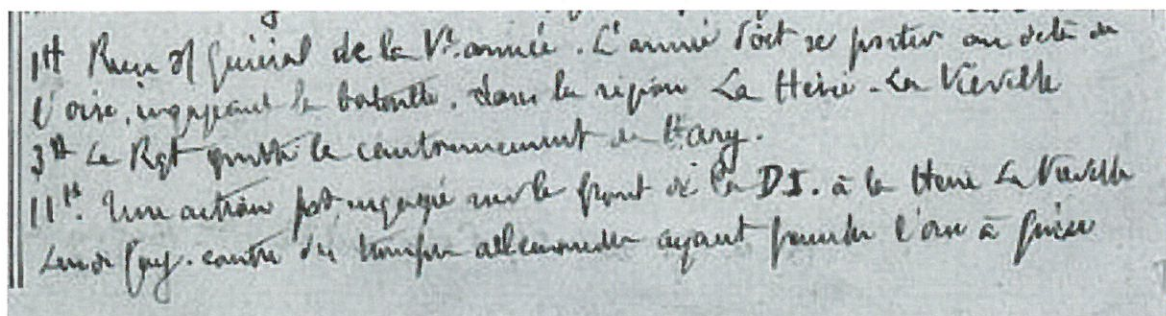 1H Reçu O/ Général de la Vᵉ armée. L'armée doit se porter au delà de
l'oise, engageant la bataille, dans la région La Hérie - La Viéville
3H Le Rgt quitte le cantonnement de Hary.
11H. Une action est engagée sur le front de la D.I. à la Hérie La Viéville
contre des troupes allemandes ayant franchi l'oise à Guise